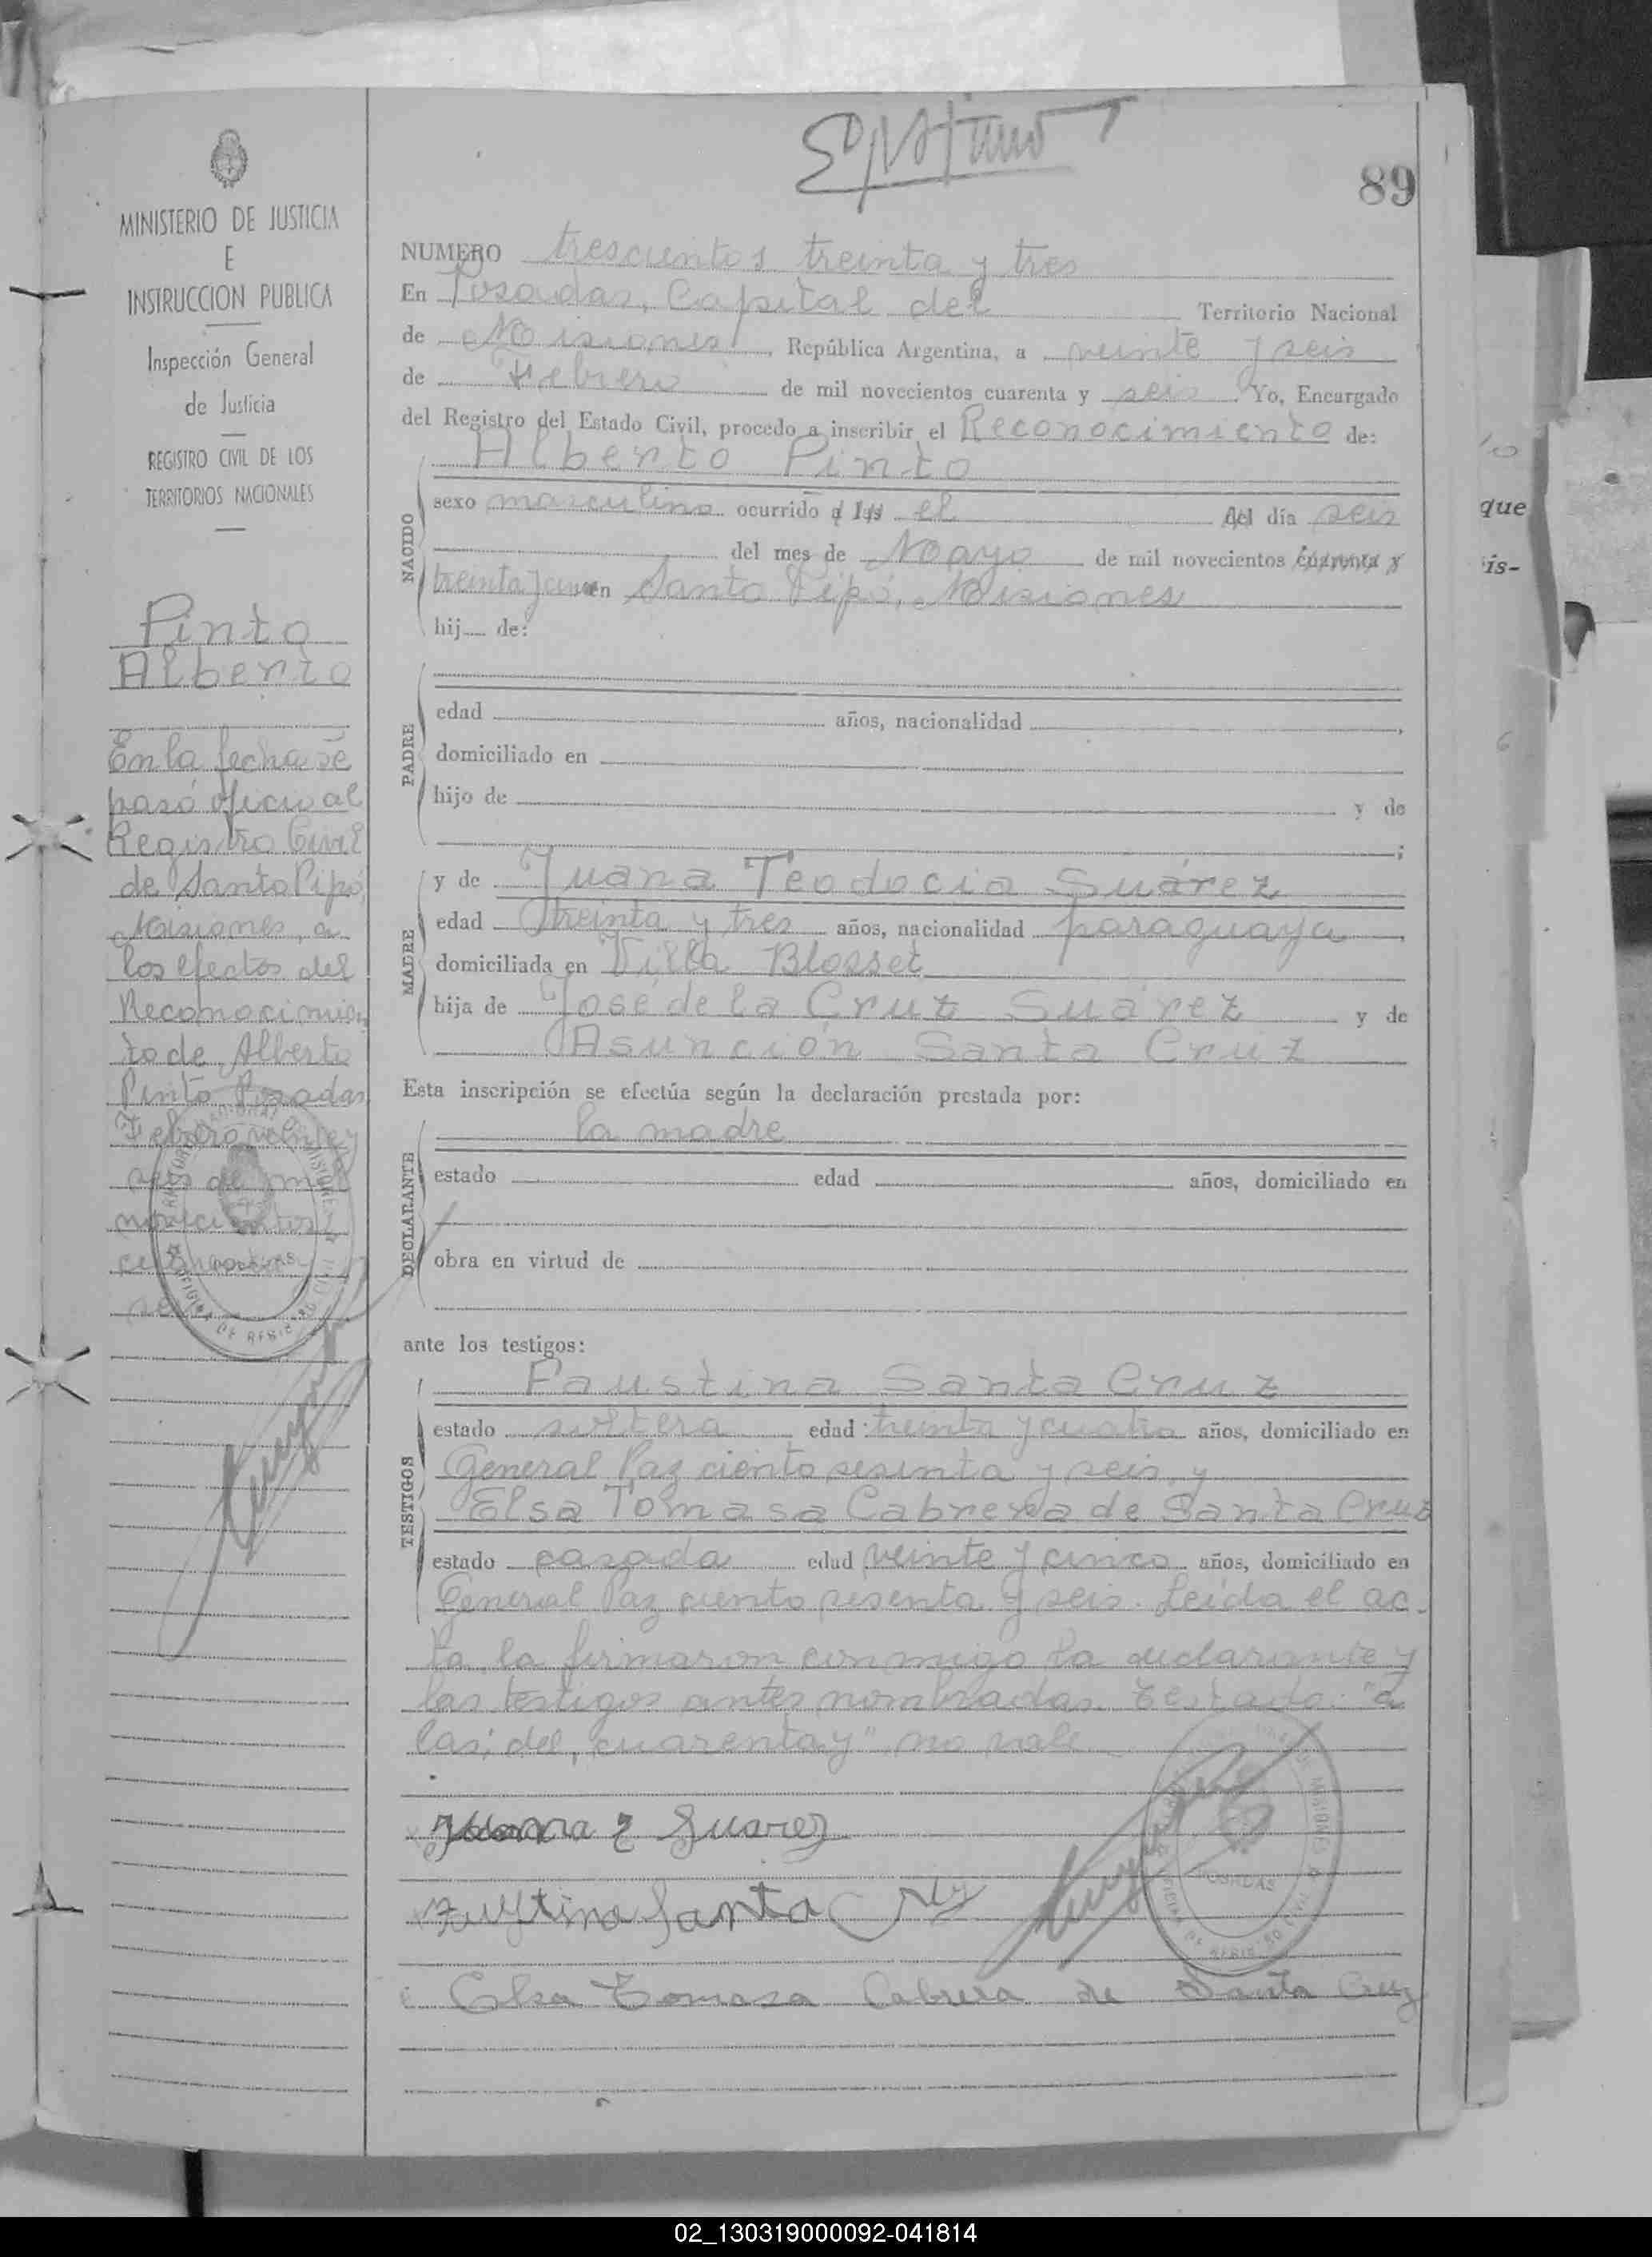 89
MINISTERIO DE JUSTICIA
E
INSTRUCCION PUBLICA
Inspección General
de Justicia
REGISTRO CIVIL DE LOS
TERRITORIOS NACIONALES
Pinto
Alberto
En la fecha se
pasó oficio al
Registro Civil
de Santo Pipó,
Misiones, a
los efectos del
Reconocimien
to de Alberto
Pinto Posadas
Febrero veinte y
seis de mil
novecientos
cuarenta y
seis
NUMERO trescientos treinta y tres
En Posadas, Capital del Territorio Nacional
de Misiones, República Argentina, a veinte y seis
de Febrero de mil novecientos cuarenta y seis. Yo, Encargado
del Registro del Estado Civil, procedo a inscribir el Reconocimiento de:
NACIDO
Alberto Pinto
sexo masculino ocurrido a las el del día seis
del mes de Mayo de mil novecientos cuarenta y
treinta y en Santo Pipó, Misiones
hij de:
PADRE
edad años, nacionalidad ,
domiciliado en
hijo de y de
;
MADRE
y de Juana Teodocia Suárez
edad treinta y tres años, nacionalidad paraguaya,
domiciliada en Villa Blosset
hija de José de la Cruz Suárez y de
Asunción Santa Cruz
Esta inscripción se efectúa según la declaración prestada por:
DECLARANTE
la madre
estado edad años, domiciliado en
obra en virtud de
ante los testigos:
TESTIGOS
Faustina Santa Cruz
estado soltera edad treinta y cuatro años, domiciliado en
General Paz ciento sesenta y seis y
Elsa Tomasa Cabrera de Santa Cruz
estado casada edad veinte y cinco años, domiciliado en
General Paz ciento sesenta y seis. Leída el ac-
ta, la firmaron conmigo la declarante y
las testigos antes nombradas. Testado: "a
las; del, cuarenta y" no vale
Juana T Suarez
Faustina Santa Cruz
Elsa Tomasa Cabrera de Santa Cruz
02_130319000092-041814